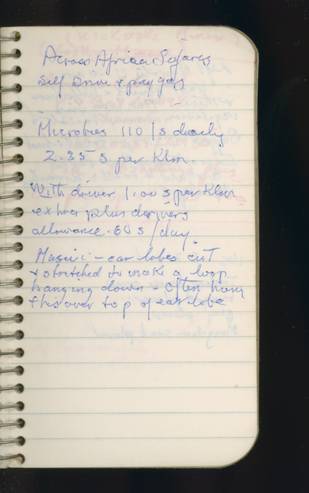 Across Africa Safaris
Self Drive + pay gas
Microbus 110/s daily
2.35 s per Klm.
With driver 1.00 s per Klm
extra plus drivers
allowance. 60 s/day
Masai - ear lobes cut
+ stretched to make a loop
hanging down - often hang
this over top of ear lobe